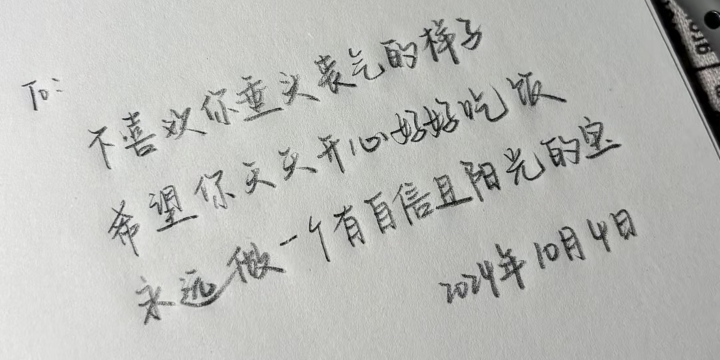 To:
不喜欢你垂头丧气的样子
希望你天天开心好好吃饭
永远做一个有自信且阳光的宝
2024年10月4日